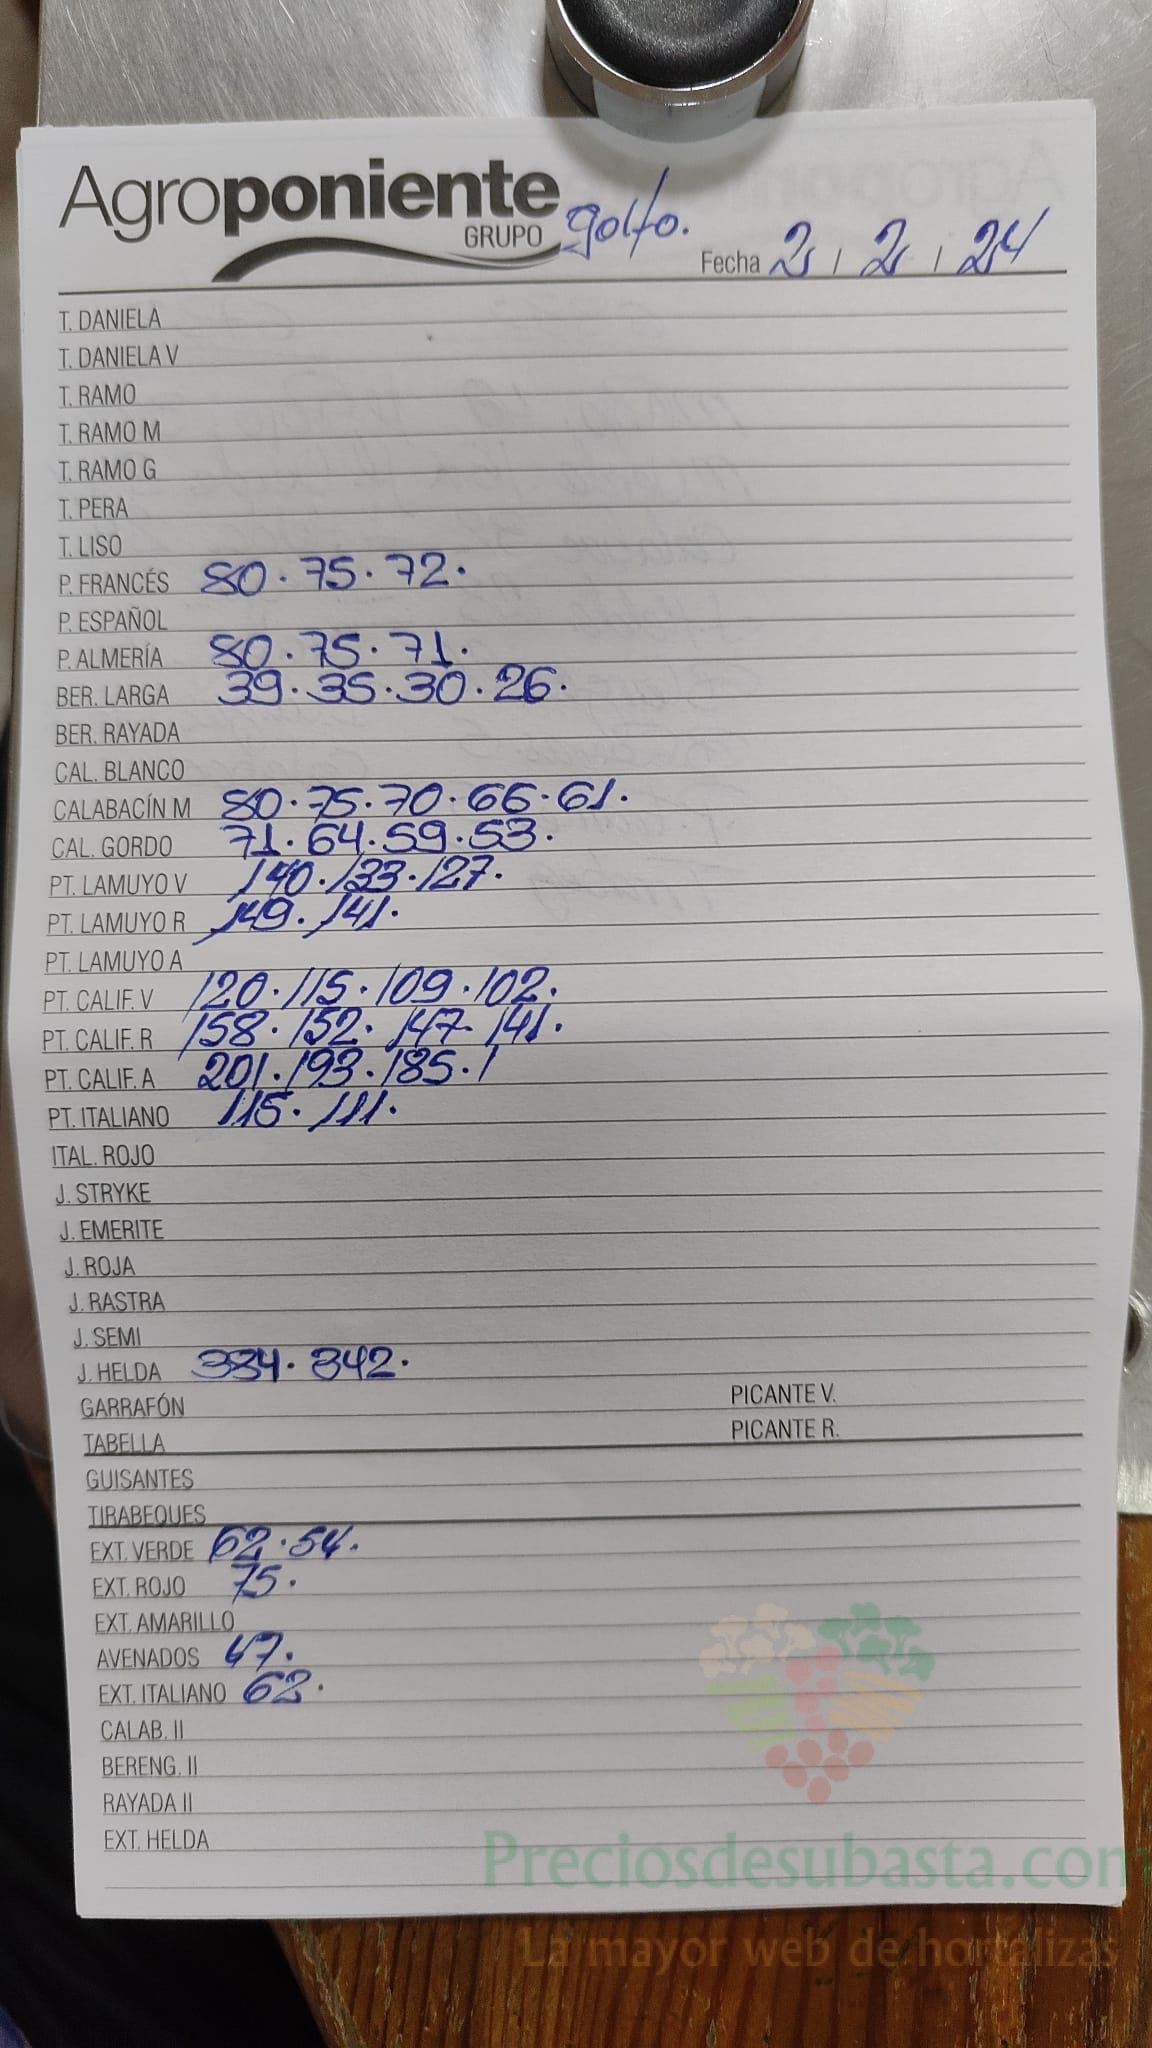 Agroponiente
GRUPO golfo.
Fecha 2 / 2 / 24
T. DANIELA
T. DANIELA V
T. RAMO
T. RAMO M
T. RAMO G
T. PERA
T. LISO
P. FRANCÉS 80. 75. 72.
P. ESPAÑOL
P. ALMERÍA 80. 75. 71.
BER. LARGA 39. 35. 30. 26.
BER. RAYADA
CAL. BLANCO
CALABACÍN M 80. 75. 70. 66. 61.
CAL. GORDO 71. 64. 59. 53.
PT. LAMUYO V 140. 133. 127.
PT. LAMUYO R 149. 141.
PT. LAMUYO A
PT. CALIF. V 120. 115. 109. 102.
PT. CALIF. R 158. 152. 147. 141.
PT. CALIF. A 201. 193. 185. 1
PT. ITALIANO 115. 111.
ITAL. ROJO
J. STRYKE
J. EMERITE
J. ROJA
J. RASTRA
J. SEMI
J. HELDA 342.
GARRAFÓN PICANTE V.
TABELLA PICANTE R.
GUISANTES
TIRABEQUES
EXT. VERDE 62. 54.
EXT. ROJO 75.
EXT. AMARILLO
AVENADOS 47.
EXT. ITALIANO 62.
CALAB. II
BERENG. II
RAYADA II
EXT. HELDA
Preciosdesubasta.com
La mayor web de hortalizas